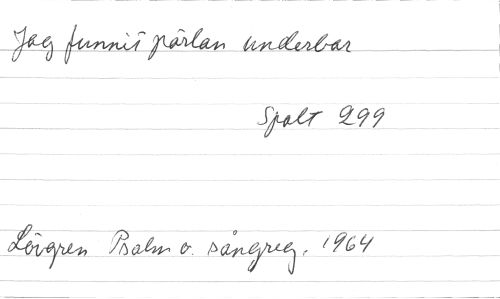 Jag funnit pärlan underbar
Spalt 299
Lövgren Psalm o. sångreg. 1964